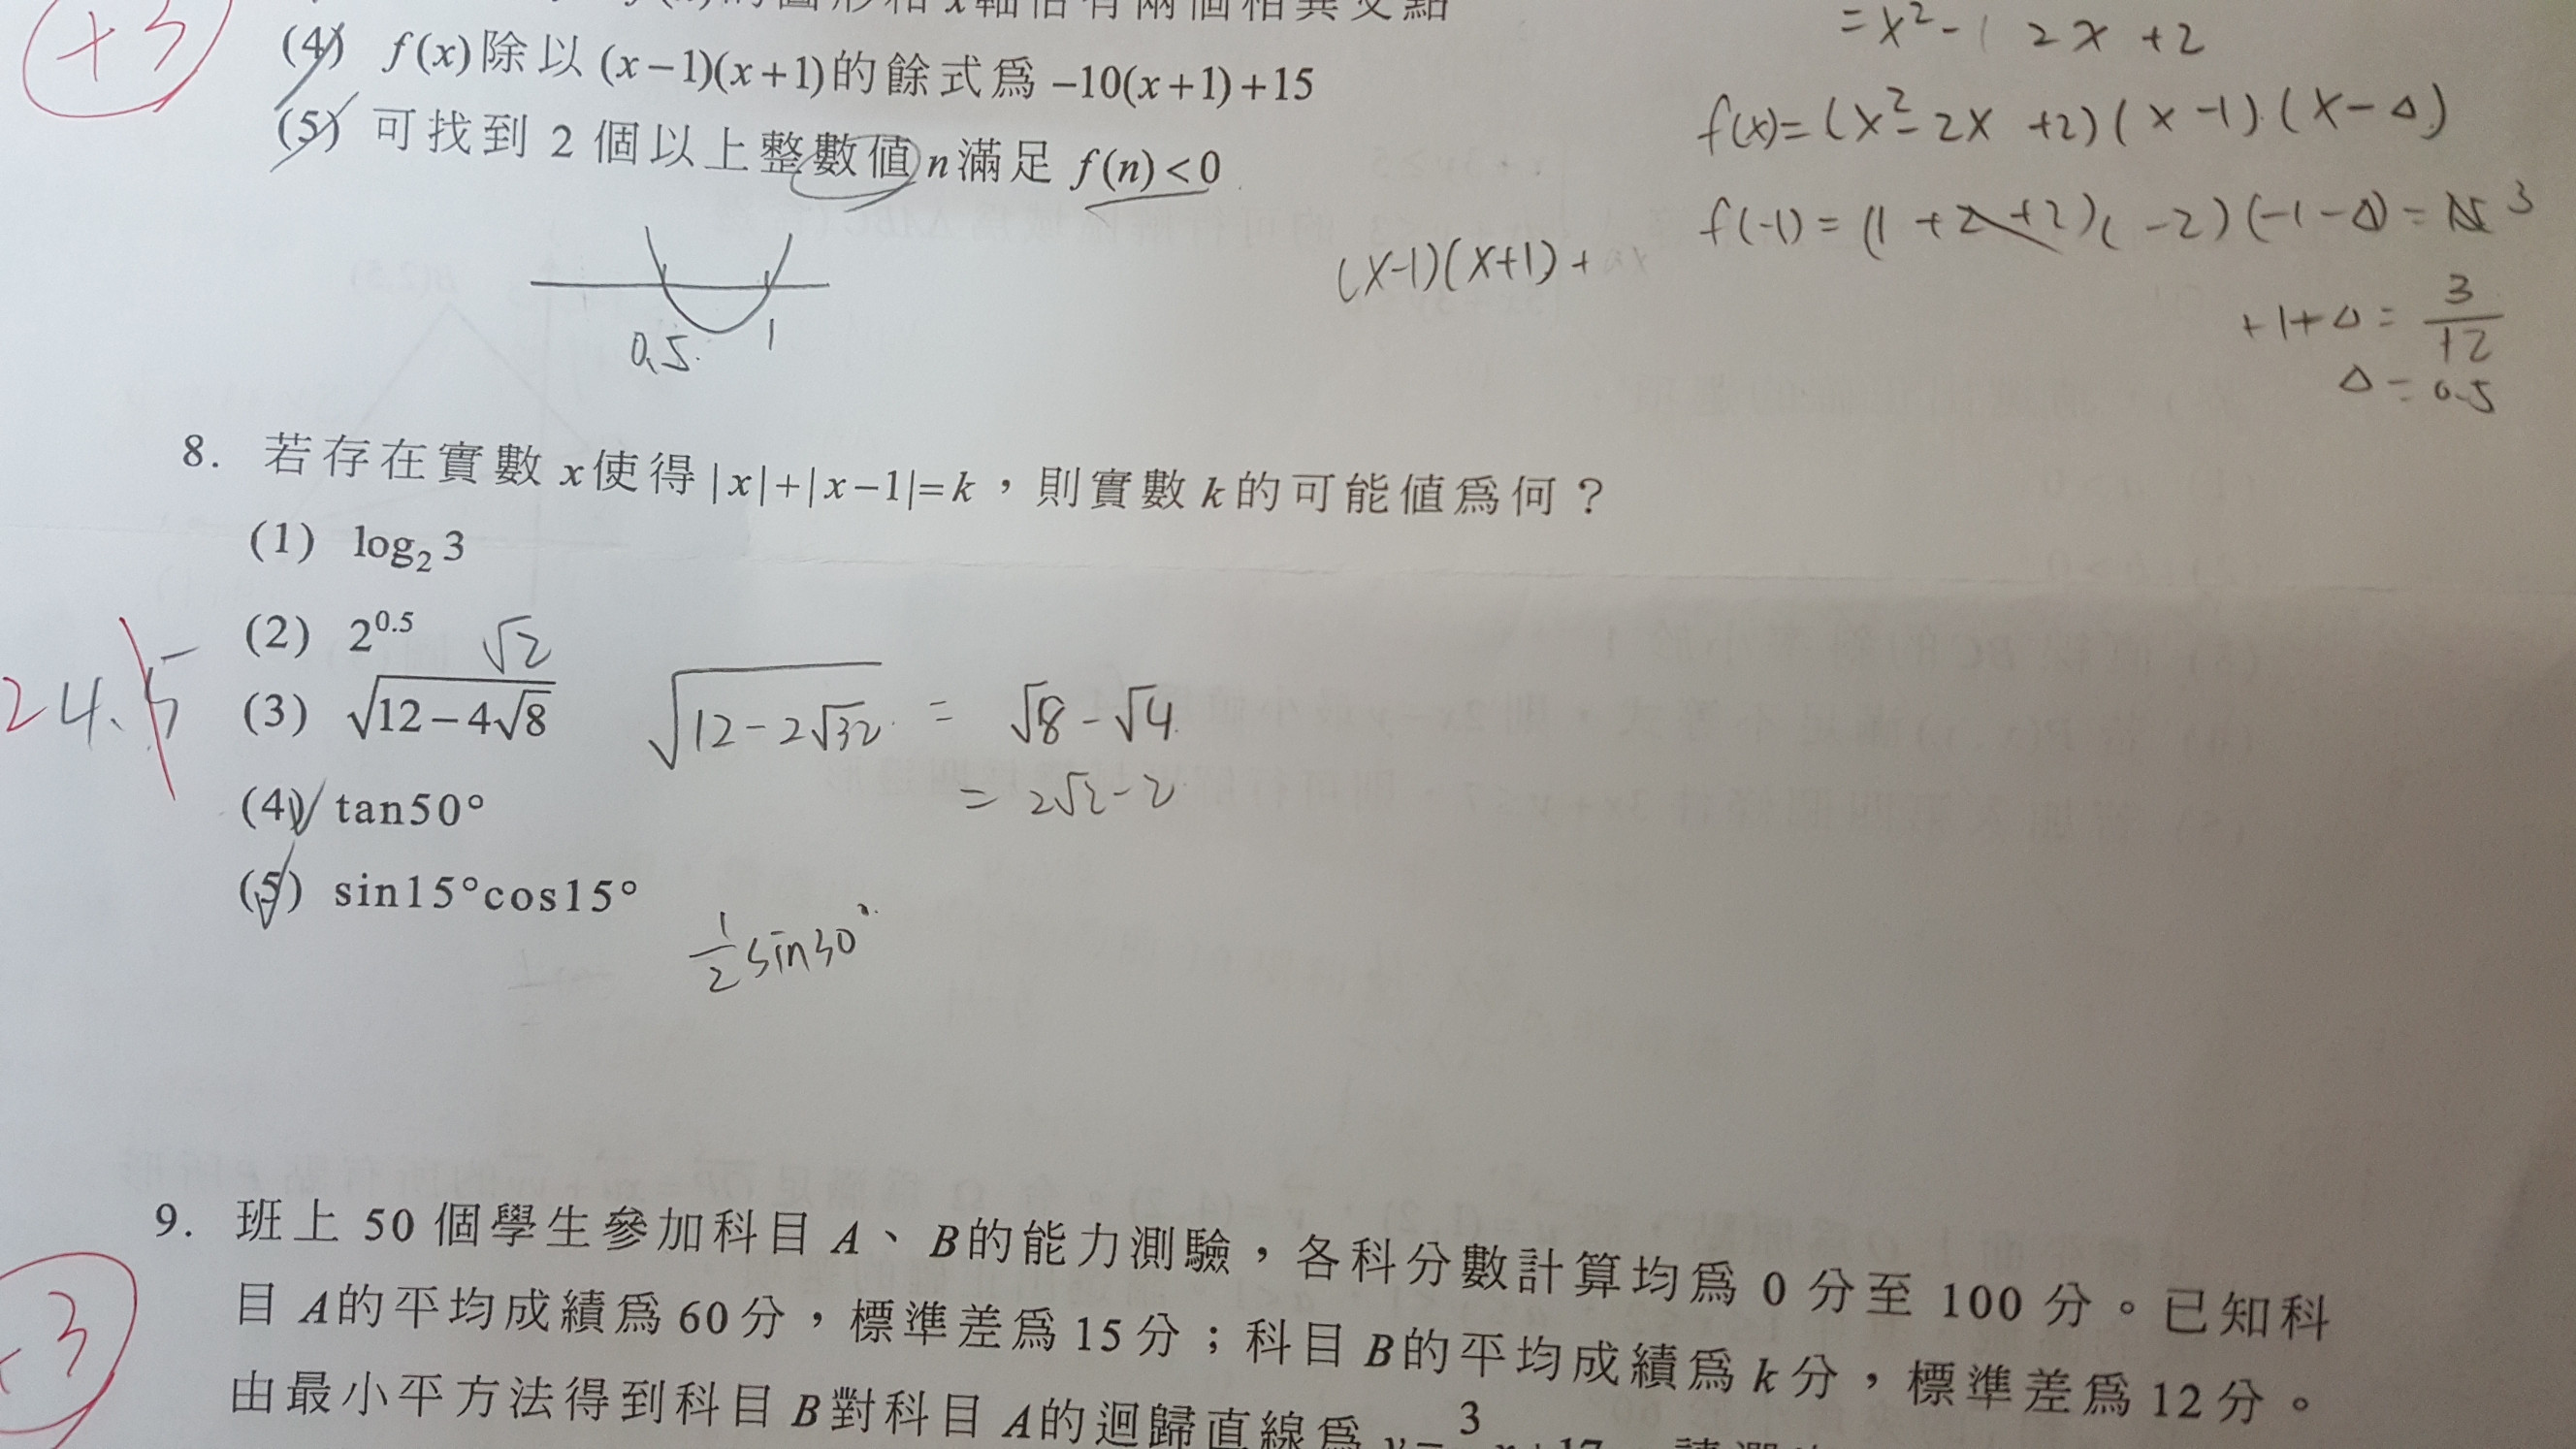 的圖形和x軸恰有兩個相異交點
(4) f(x)除以(x−1)(x+1)的餘式爲−10(x+1)+15
(5) 可找到 2 個以上整數值n滿足 f(n)<0
+3
=x²-12x+2
f(x)=(x²-2x+2)(x-1)(x-Δ)
f(-1)=(1+2+2)(-2)(-1-Δ)=15 3
+1+Δ=3/12
Δ=0.5
(x-1)(x+1)+
0.5 1
8. 若存在實數x使得|x|+|x−1|=k，則實數k的可能值爲何？
(1) log₂3
(2) 2^0.5 √2
24.5
(3) √(12−4√8) √(12-2√32) = √8-√4
= 2√2-2
(4) tan50°
(5) sin15°cos15°
1/2 sin30°
9. 班上 50 個學生參加科目 A、B的能力測驗，各科分數計算均爲 0 分至 100 分。已知科
目 A的平均成績爲60分，標準差爲15分；科目B的平均成績爲k分，標準差爲12分。
3
由最小平方法得到科目B對科目A的迴歸直線爲